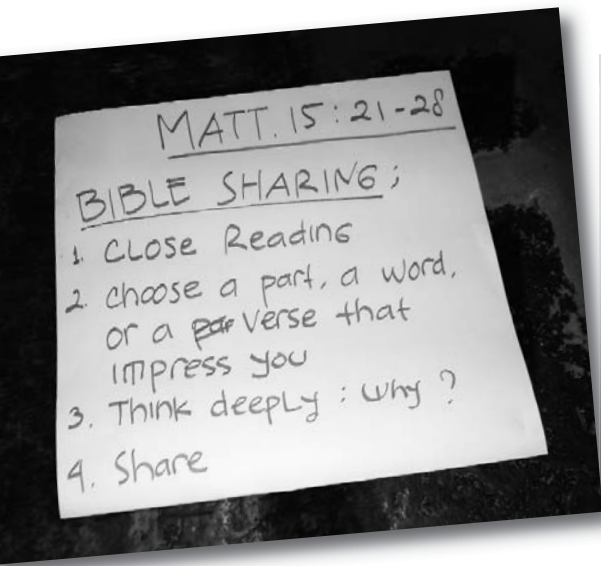 MATT. 15:21-28
BIBLE SHARING;
1. CLOSE Reading
2. choose a part, a word,
or a par verse that
impress you
3. Think deepLy : why ?
4. Share